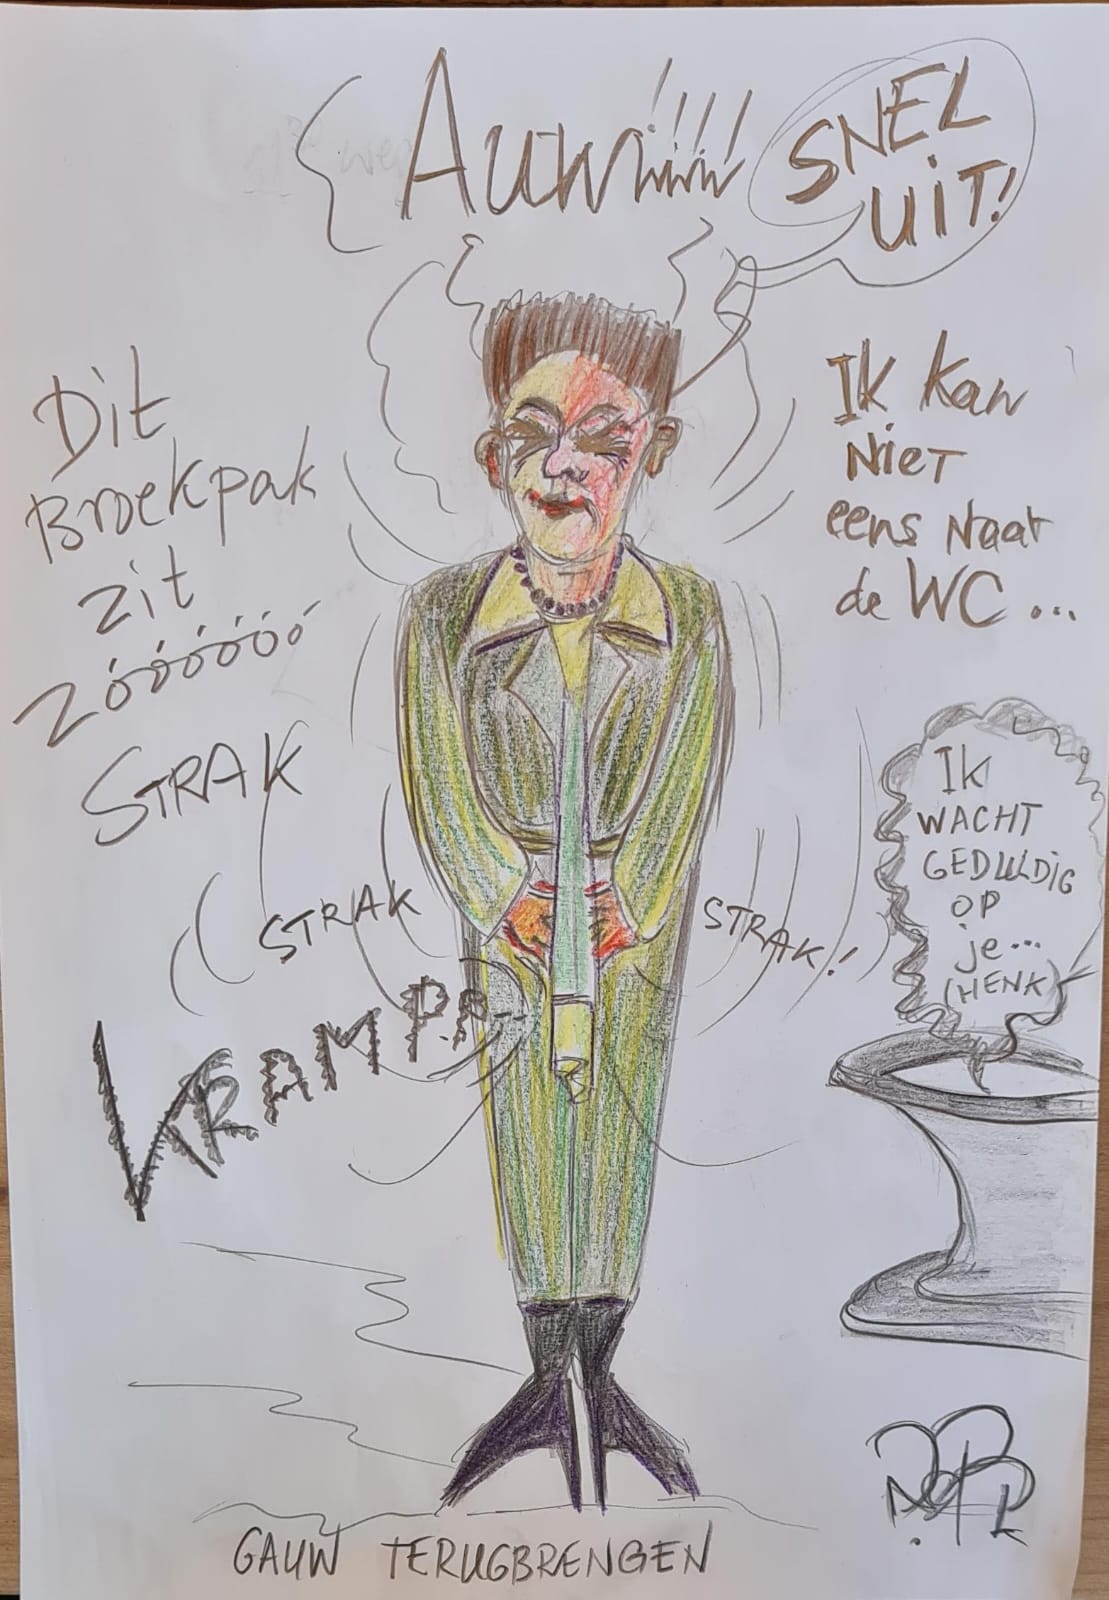 Auw!!!!
SNEL
UIT!
Dit
Broekpak
zit
zóóóóóó
STRAK
IK kan
NIET
eens Naar
de WC ...
STRAK
STRAK!
KRAMP
IK
WACHT
GEDULDIG
OP
je...
(HENK)
GAUW TERUGBRENGEN